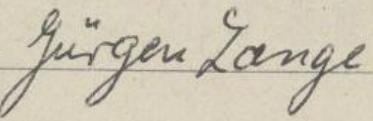 Jürgen Lange